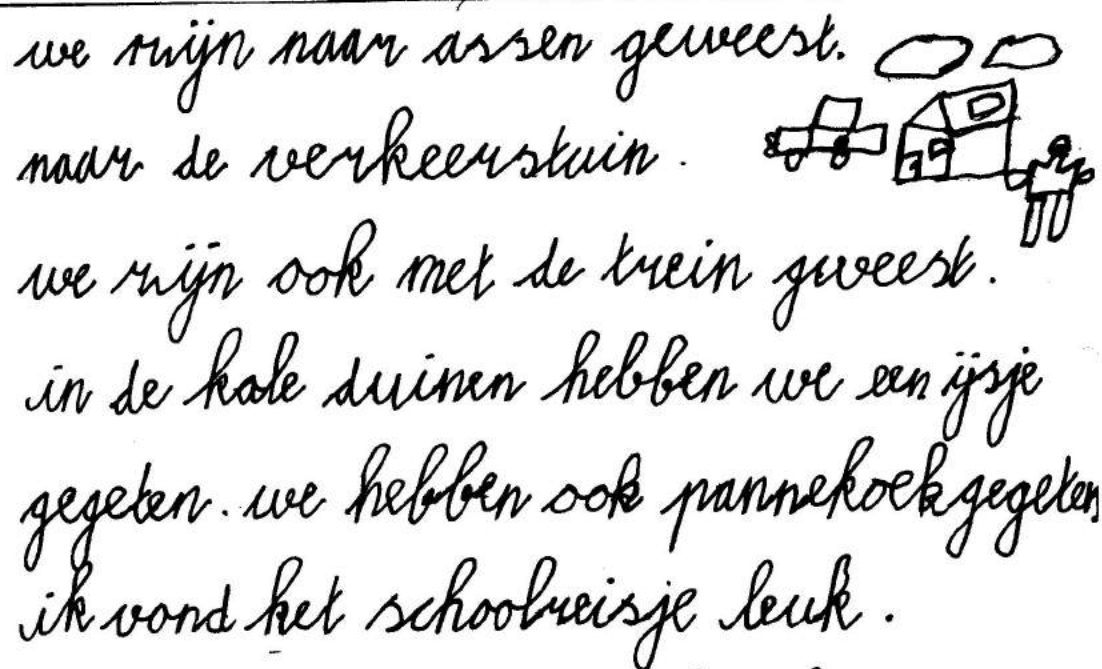 we zijn naar assen geweest.
naar de verkeerstuin.
we zijn ook met de trein gweest.
in de kale duinen hebben we een ijsje
gegeten. we hebben ook pannekoek gegeten
ik vond het schoolreisje leuk.